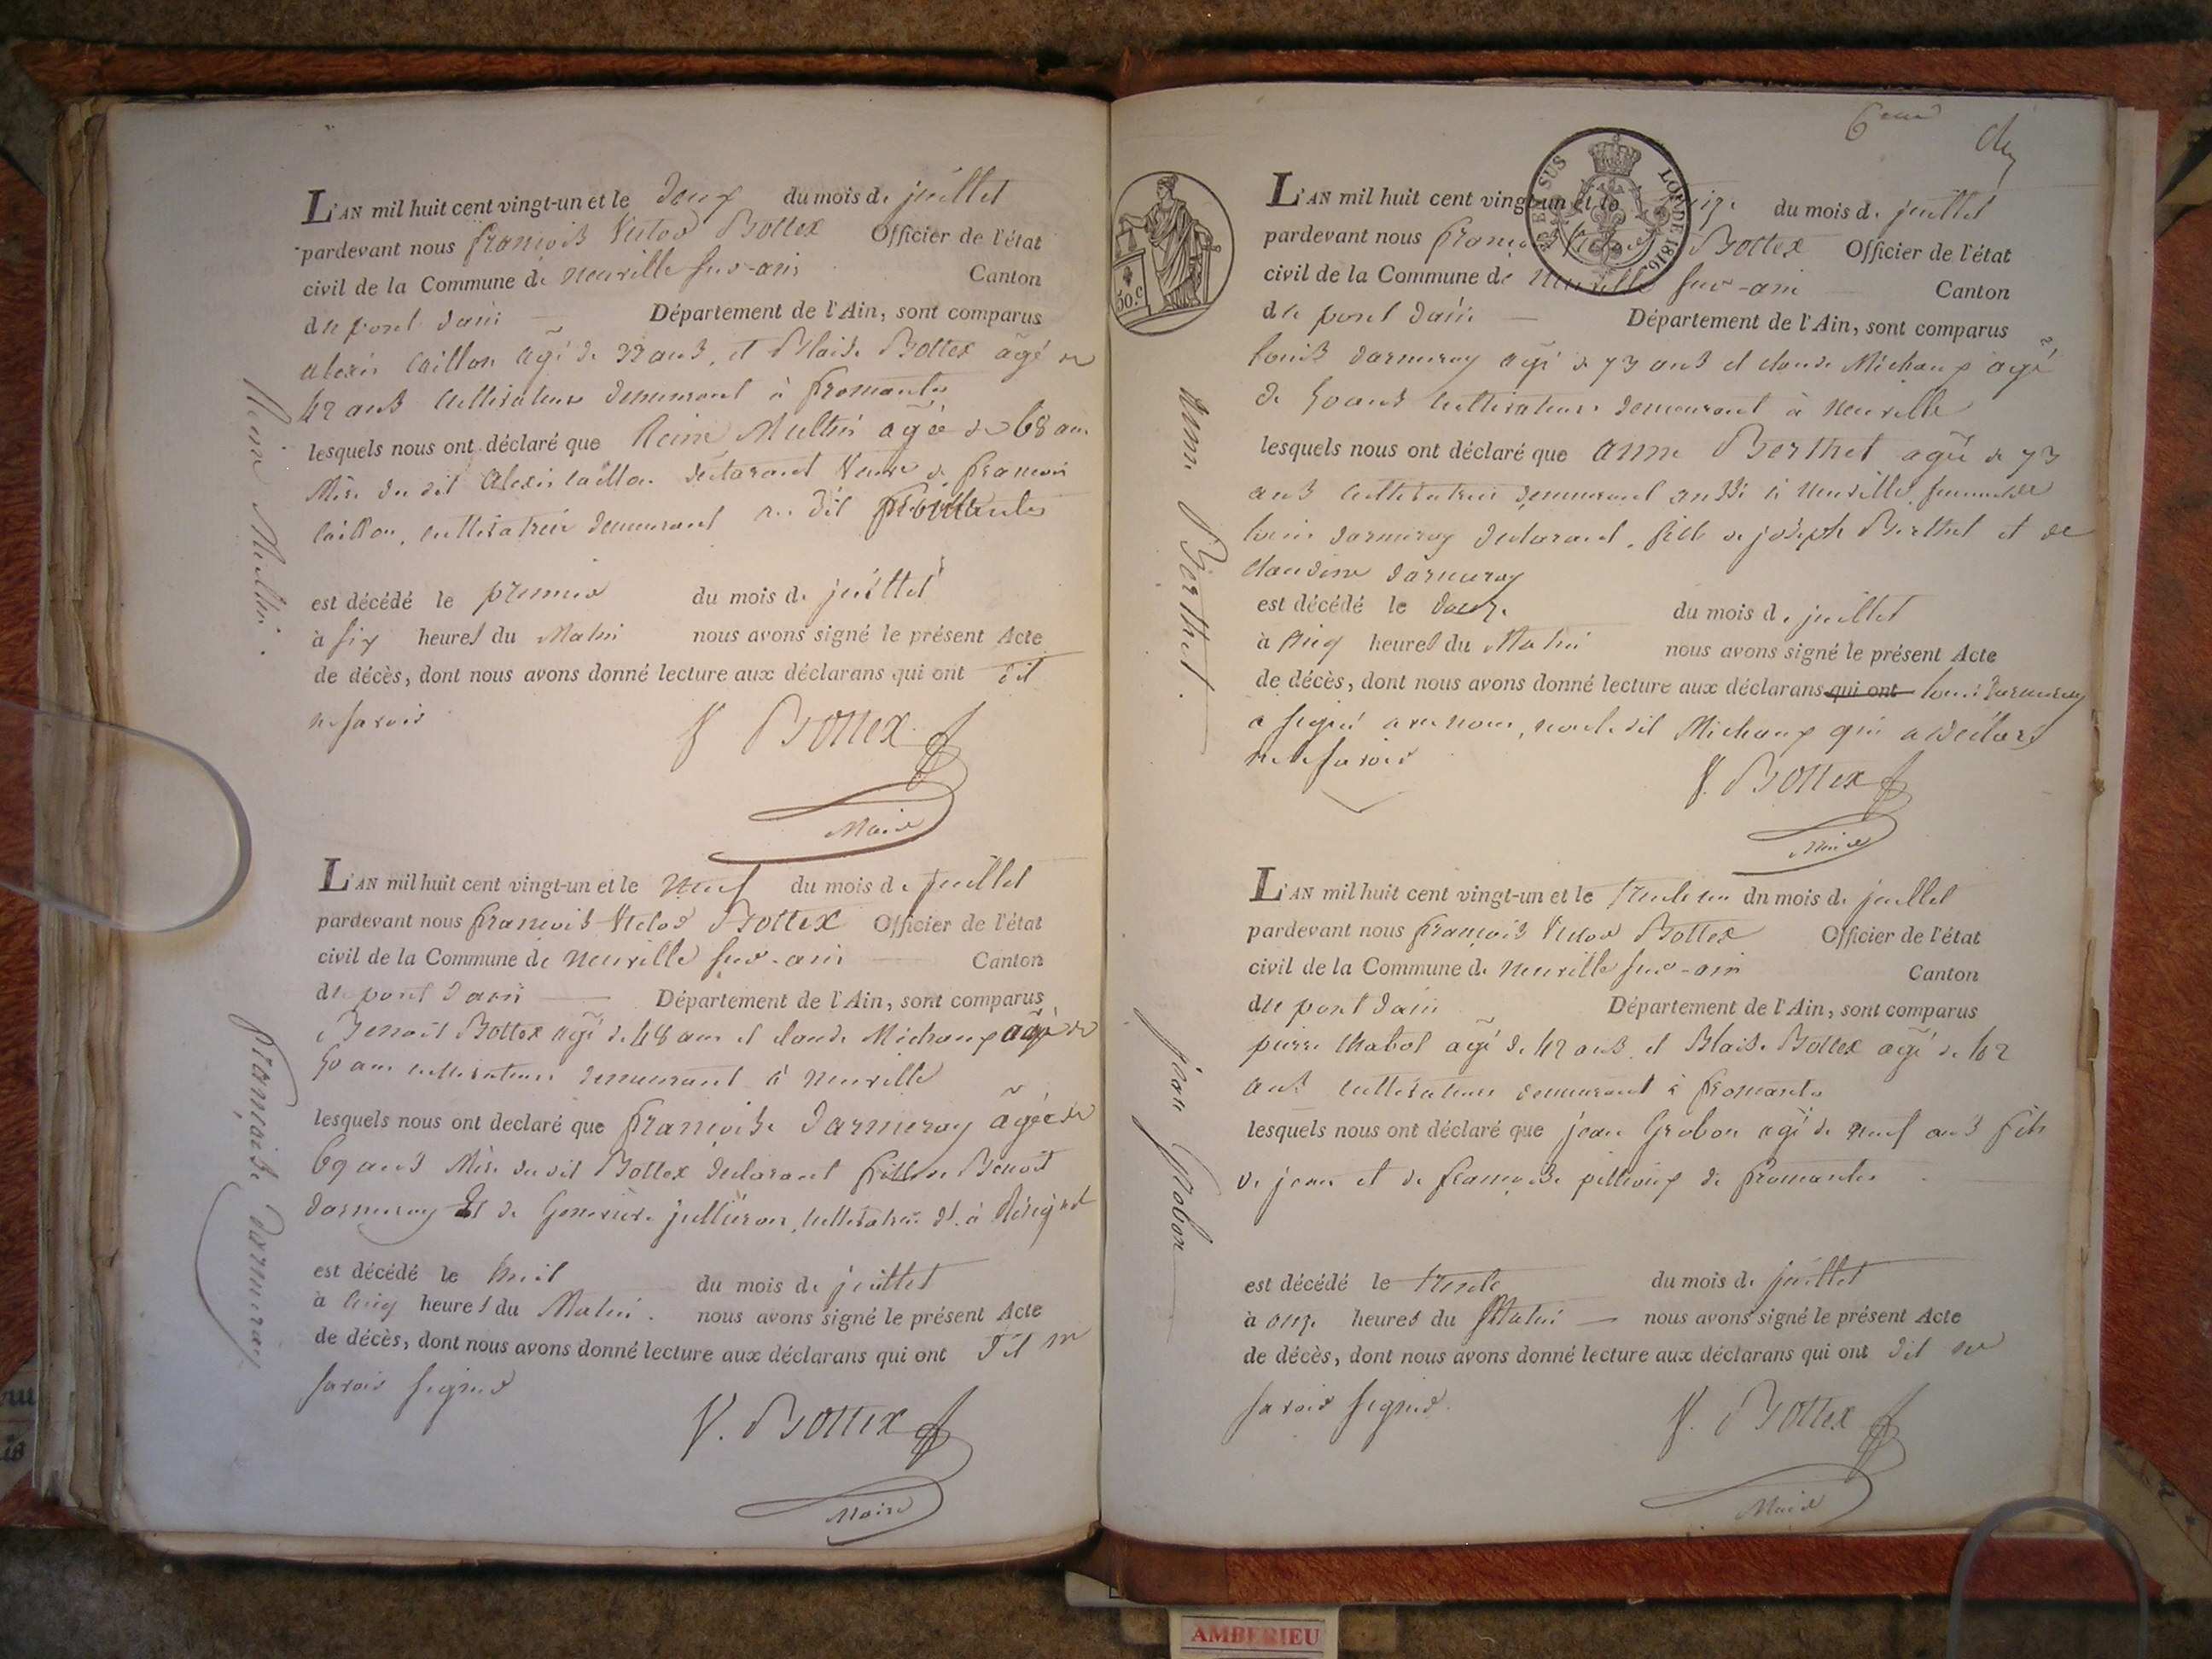 L'AN mil huit cent vingt-un et le deux du mois de juillet
pardevant nous françois Victor Bottex Officier de l'état
civil de la Commune de neuville sur-ain Canton
du pont dain Département de l'Ain, sont comparus
alexis caillon agé de 32 ans, et Blaise Bottex agé de
42 ans cultivateurs demeurant à fromentes
lesquels nous ont déclaré que Reine Multin agée de 68 ans
Mère du dit alexis caillon declarant Veuve de francois
caillon, cultivatrice demeurant au dit
est décédé le premier du mois de juillet
à six heures du Matin nous avons signé le présent Acte
de décès, dont nous avons donné lecture aux déclarans qui ont dit
ne savoir
V Bottex
Maire
Reine Multin.
L'AN mil huit cent vingt-un et le neuf du mois de juillet
pardevant nous françois Victor Bottex Officier de l'état
civil de la Commune de neuville sur-ain Canton
du pont dain Département de l'Ain, sont comparus
Benoit Bottex agé de 48 ans et claude Michaux agé de
50 ans cultivateurs demeurant à neuville
lesquels nous ont declaré que françoise darmeray agée de
69 ans Mère du dit Bottex declarant fille de Benoit
darmeray Et de Genevieve jullieron, cultivatrice dt. à
est décédé le huit du mois de juillet
à cinq heures du Matin. nous avons signé le présent Acte
de décès, dont nous avons donné lecture aux déclarans qui ont dit ne
savoir signer
V. Bottex
Maire
françoise darmeray
6eme
L'AN mil huit cent vingt-un et le du mois de juillet
pardevant nous françois Victor Bottex Officier de l'état
civil de la Commune de neuville sur-ain Canton
du pont dain Département de l'Ain, sont comparus
LOI DE 1816
50.c
louis darmeray agé de 73 ans et claude Michaux agé
de 50 ans cultivateurs demeurant à neuville
lesquels nous ont déclaré que anne Berthet agée de 73
ans cultivatrice demeurant aussi à neuville femme de
louis darmeray declarant, fille de joseph Berthet et de
claudine darmeray
est décédé le douze du mois de juillet
à cinq heures du Matin nous avons signé le présent Acte
de décès, dont nous avons donné lecture aux déclarans qui ont louis darmeray
a signé avec nous, non le dit Michaux qui a déclaré
ne le savoir
V. Bottex
Maire
anne Berthet.
L'AN mil huit cent vingt-un et le trente un dn mois de juillet
pardevant nous françois Victor Bottex Officier de l'état
civil de la Commune de neuville sur-ain Canton
du pont dain Département de l'Ain, sont comparus
pierre chabot agé de 42 ans, et Blaise Bottex agé de 42
ans cultivateurs demeurant à fromentes
lesquels nous ont déclaré que jean Grobon agé de neuf ans fils
de jean et de françoise pilloux de fromentes
est décédé le trente du mois de juillet
à onze heures du Matin nous avons signé le présent Acte
de décès, dont nous avons donné lecture aux déclarans qui ont dit ne
savoir signer.
V. Bottex
Maire
jean Grobon
AMBERIEU